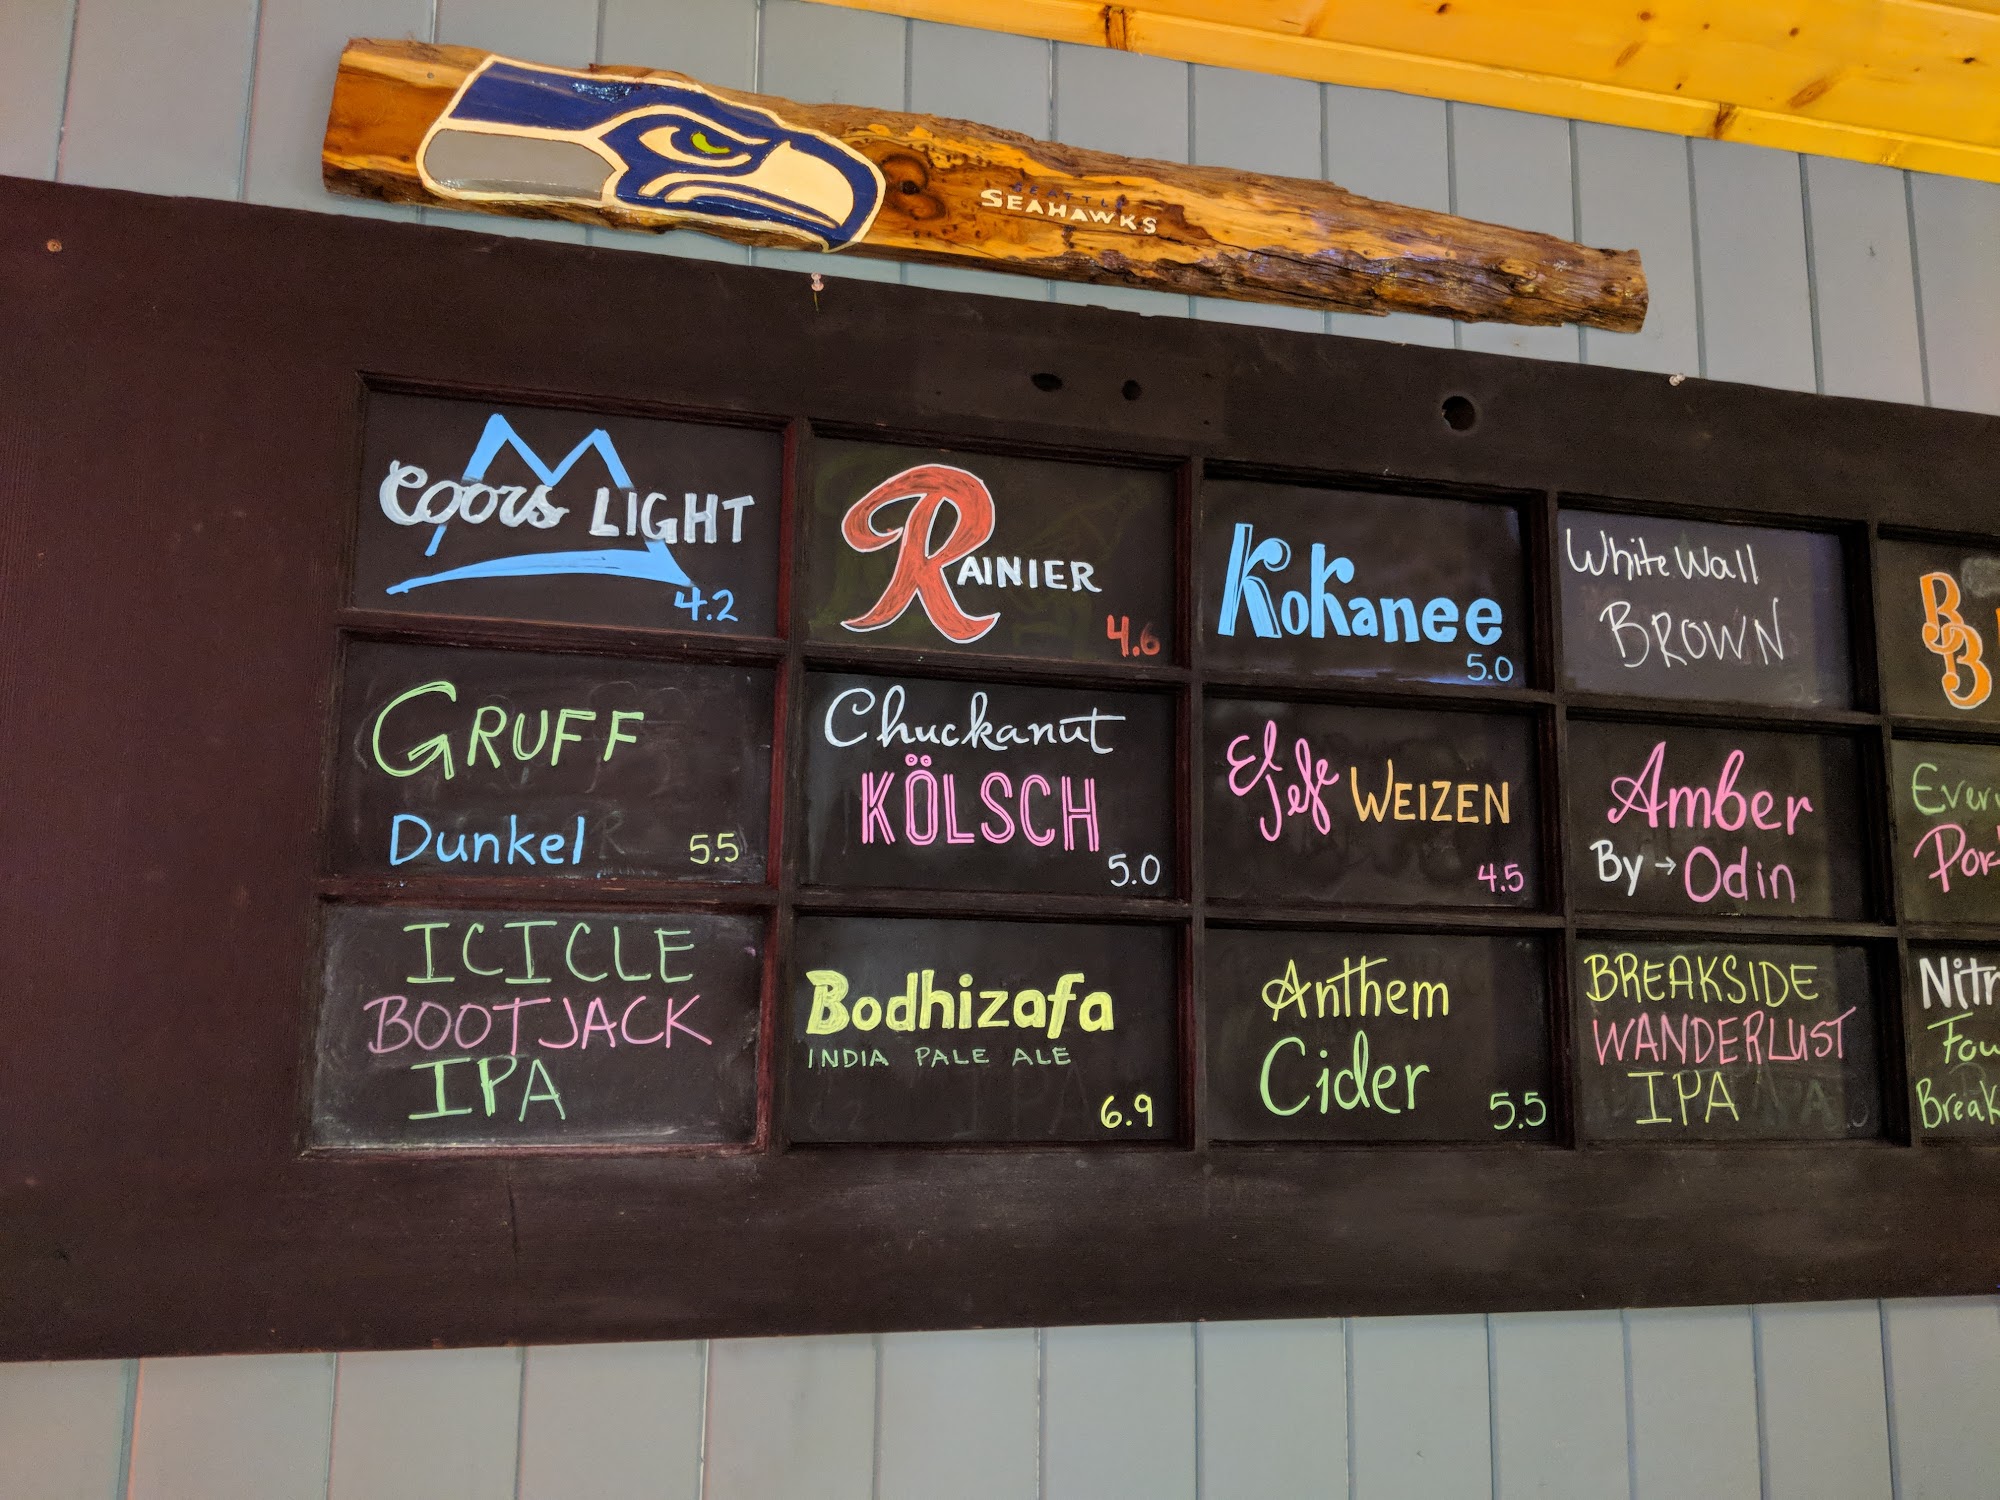 SEATTLE
SEAHAWKS
Coors LIGHT
4.2
RAINIER
4.6
Kokanee
5.0
White Wall
BROWN
BB
GRUFF
Dunkel 5.5
Chuckanut
KÖLSCH
5.0
El Jefe WEIZEN
4.5
Amber
By → Odin
ICICLE
BOOTJACK
IPA
Bodhizafa
INDIA PALE ALE
6.9
Anthem
Cider 5.5
BREAKSIDE
WANDERLUST
IPA